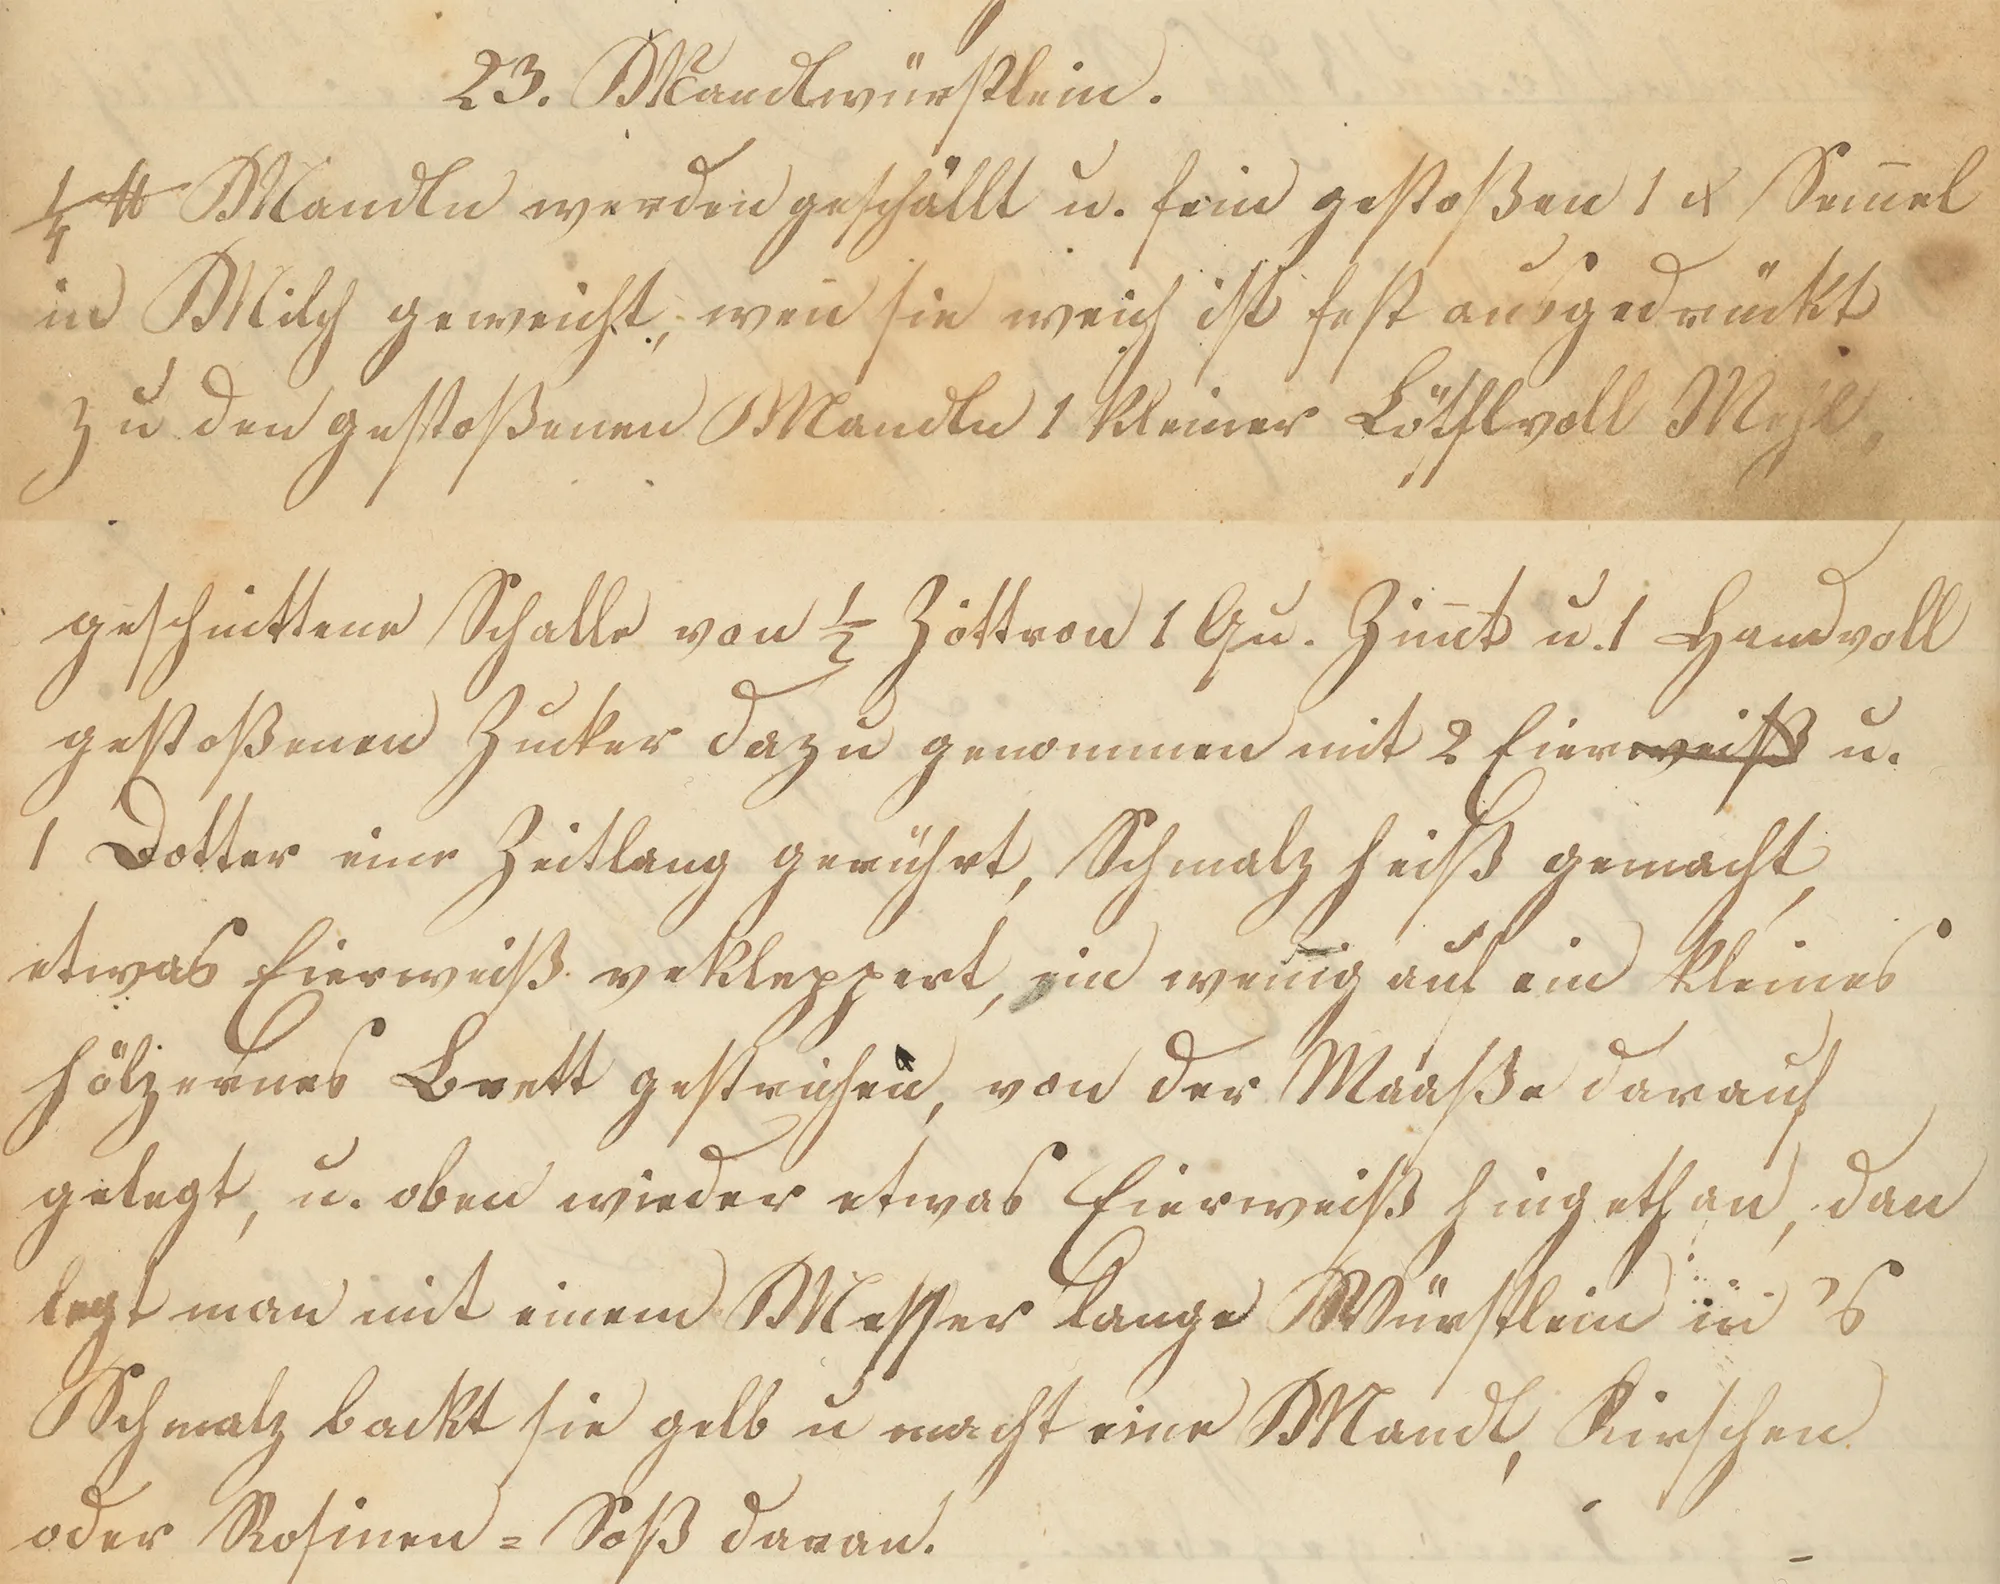 23. Mandlwürstlein.
¼ ℔ Mandln werden geschällt u. fein gestoßen 1 x Sem̅el
in Milch geweicht, wen̅ sie weich ist fest ausgedrückt
zu den gestoßenen Mandln 1 kleiner Löfflvoll Mehl,
geschnittene Schalle von ½ Zittron 1 Qu. Zim̅t u. 1 Handvoll
gestoßenen Zucker dazu genommen mit 2 Eierweiß u.
1 Dotter eine Zeitlang gerührt, Schmalz heiß gemacht,
etwas Eierweiß vekleppert, ein wenig auf ein kleines
hölzernes Brett gestrichen, von der Maaße darauf
gelegt, u. oben wieder etwas Eierweiß hingethan, dan
legt man mit einem Messer lange Würstlein in 's
Schmalz backt sie gelb u macht eine Mandl, Kirschen
oder Rosinen = Soß daran.